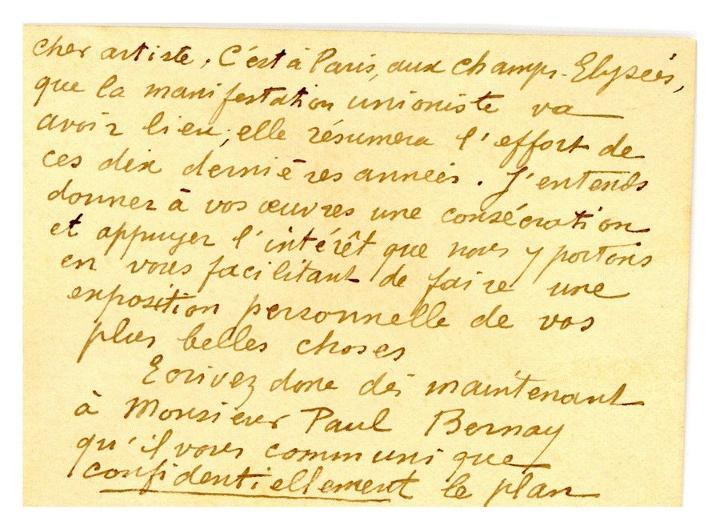 cher artiste, C'est à Paris, aux champs-Elysées,
que la manifestation unioniste va
avoir lieu; elle résumera l'effort de
ces dix dernières années. J'entends
donner à vos œuvres une consécration
et appuyer l'intérêt que nous y portons
en vous facilitant de faire une
exposition personnelle de vos
plus belles choses
Ecrivez donc dès maintenant
à Monsieur Paul Bernay
qu'il vous communique
confidentiellement le plan